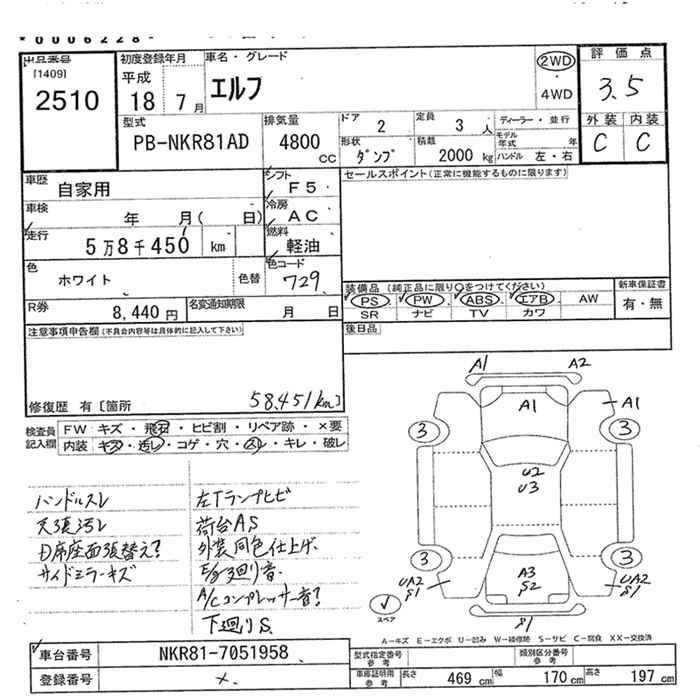 *0006228*
出品番号
[1409]
2510
初度登録年月
平成
18 7月
車名・グレード
エルフ
2WD
・
4WD
評価点
3.5
外装 内装
C C
型式
PB-NKR81AD
排気量
4800 cc
ドア 2
定員 3 人
形状 ダンプ
積載 2000 kg
ディーラー・並行
モデル年式 年
ハンドル 左・右
車歴
自家用
シフト F5
車検 年 月( 日)
冷房 AC
走行 5万8千450 km
燃料 軽油
色 ホワイト 色替
色コード 729
R券 8,440円
名変通知期限 月 日
セールスポイント(正常に機能するものに限ります)
装備品(純正品に限り○をつけてください)
PS PW ABS エアB AW
SR ナビ TV カワ
新車保証書
有・無
後日品
注意事項申告欄(不具合内容等は具体的に記入して下さい)
58,451km
修復歴 有[箇所 ]
検査員記入欄
FW キズ・飛石・ヒビ割・リペア跡・×要
内装 キズ・汚レ・コゲ・穴・スレ・キレ・破レ
ハンドルスレ
天張汚レ
D席座面張替え?
サイドミラーキズ
左Tランプヒビ
荷台AS
外装同色仕上げ
E/g廻り音
A/Cコンプレッサー音?
下廻りS
A1 A2
A1 A1
3 3
U2
U3
3 3
UA2
S1
A3
S2
UA2
S1
S1
スペア
A-キズ E-エクボ U-凹み W-補修跡 S-サビ C-腐食 XX-交換済
車台番号 NKR81-7051958
登録番号 ×
型式指定番号
参考
類別区分番号
参考
車庫証明用
参考
長さ 469 cm
幅 170 cm
高さ 197 cm